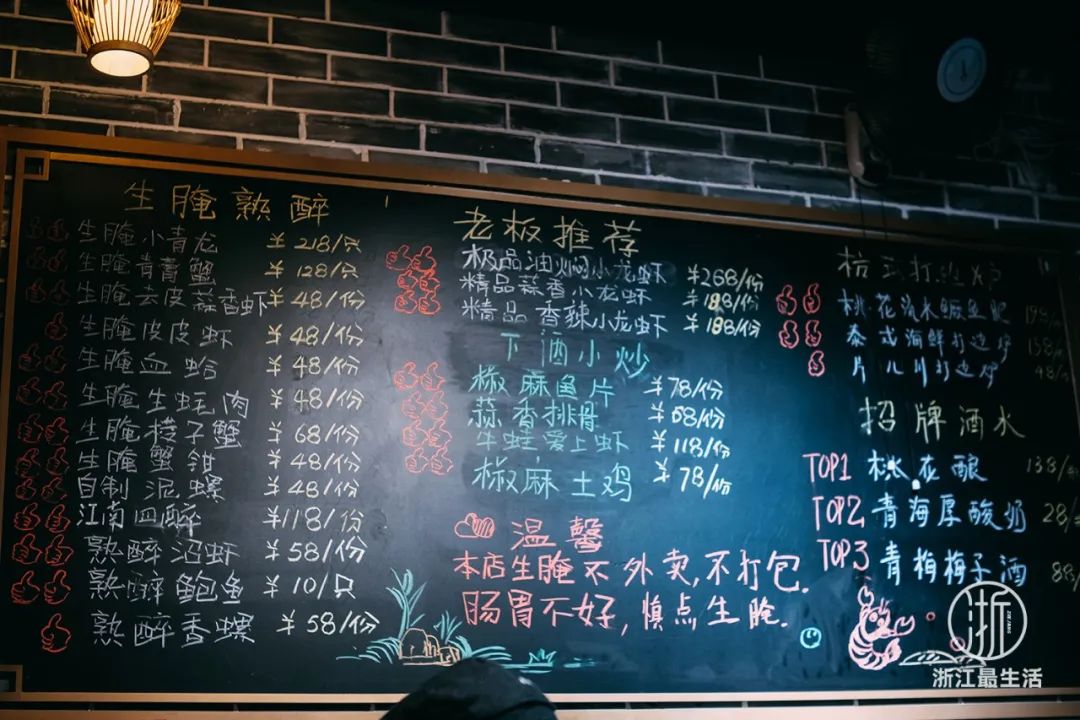 生腌熟醉
生腌小青龙 ¥218/只
生腌青膏蟹 ¥128/只
生腌去皮蒜香虾 ¥48/份
生腌皮皮虾 ¥48/份
生腌血蛤 ¥48/份
生腌生蚝肉 ¥48/份
生腌梭子蟹 ¥68/份
生腌蟹钳 ¥48/份
自制泥螺 ¥48/份
江南四醉 ¥118/份
熟醉沼虾 ¥58/份
熟醉鲍鱼 ¥10/只
熟醉香螺 ¥58/份
老板推荐
极品油焖小龙虾 ¥268/份
精品蒜香小龙虾 ¥188/份
精品香辣小龙虾 ¥188/份
下酒小炒
椒麻鱼片 ¥78/份
蒜香排骨 ¥68/份
牛蛙爱上虾 ¥118/份
椒麻土鸡 ¥78/份
温馨
本店生腌不外卖,不打包.
肠胃不好,慎点生腌.
桃花流水鳜鱼肥
泰式海鲜打边炉
片儿川打边炉
招牌酒水
TOP1 桃花酿
TOP2 青海厚酸奶 28/
TOP3 青梅梅子酒
浙
浙江最生活